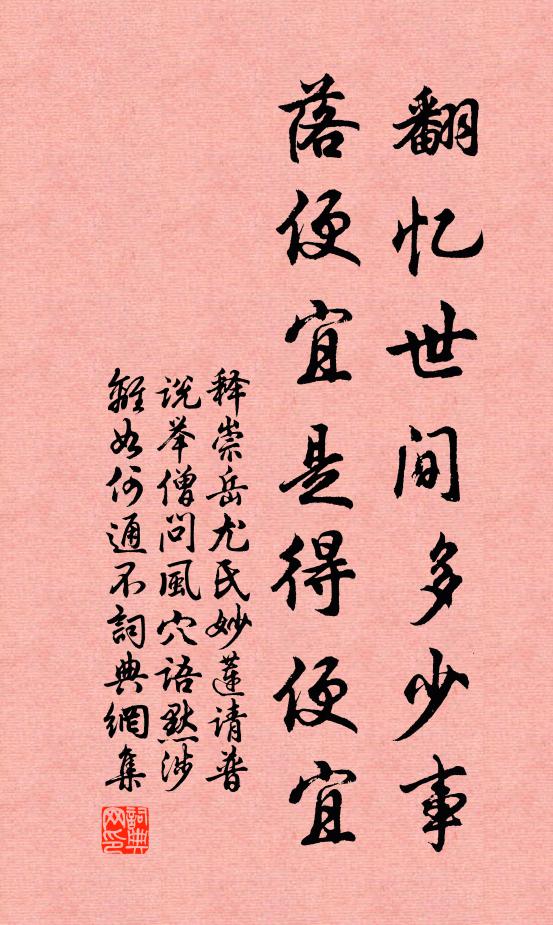 翻忆世间多少事
落便宜是得便宜
释崇岳尤氏妙莲请普
说举僧问风穴语默涉
離如何通不詞典網集
詞典网印